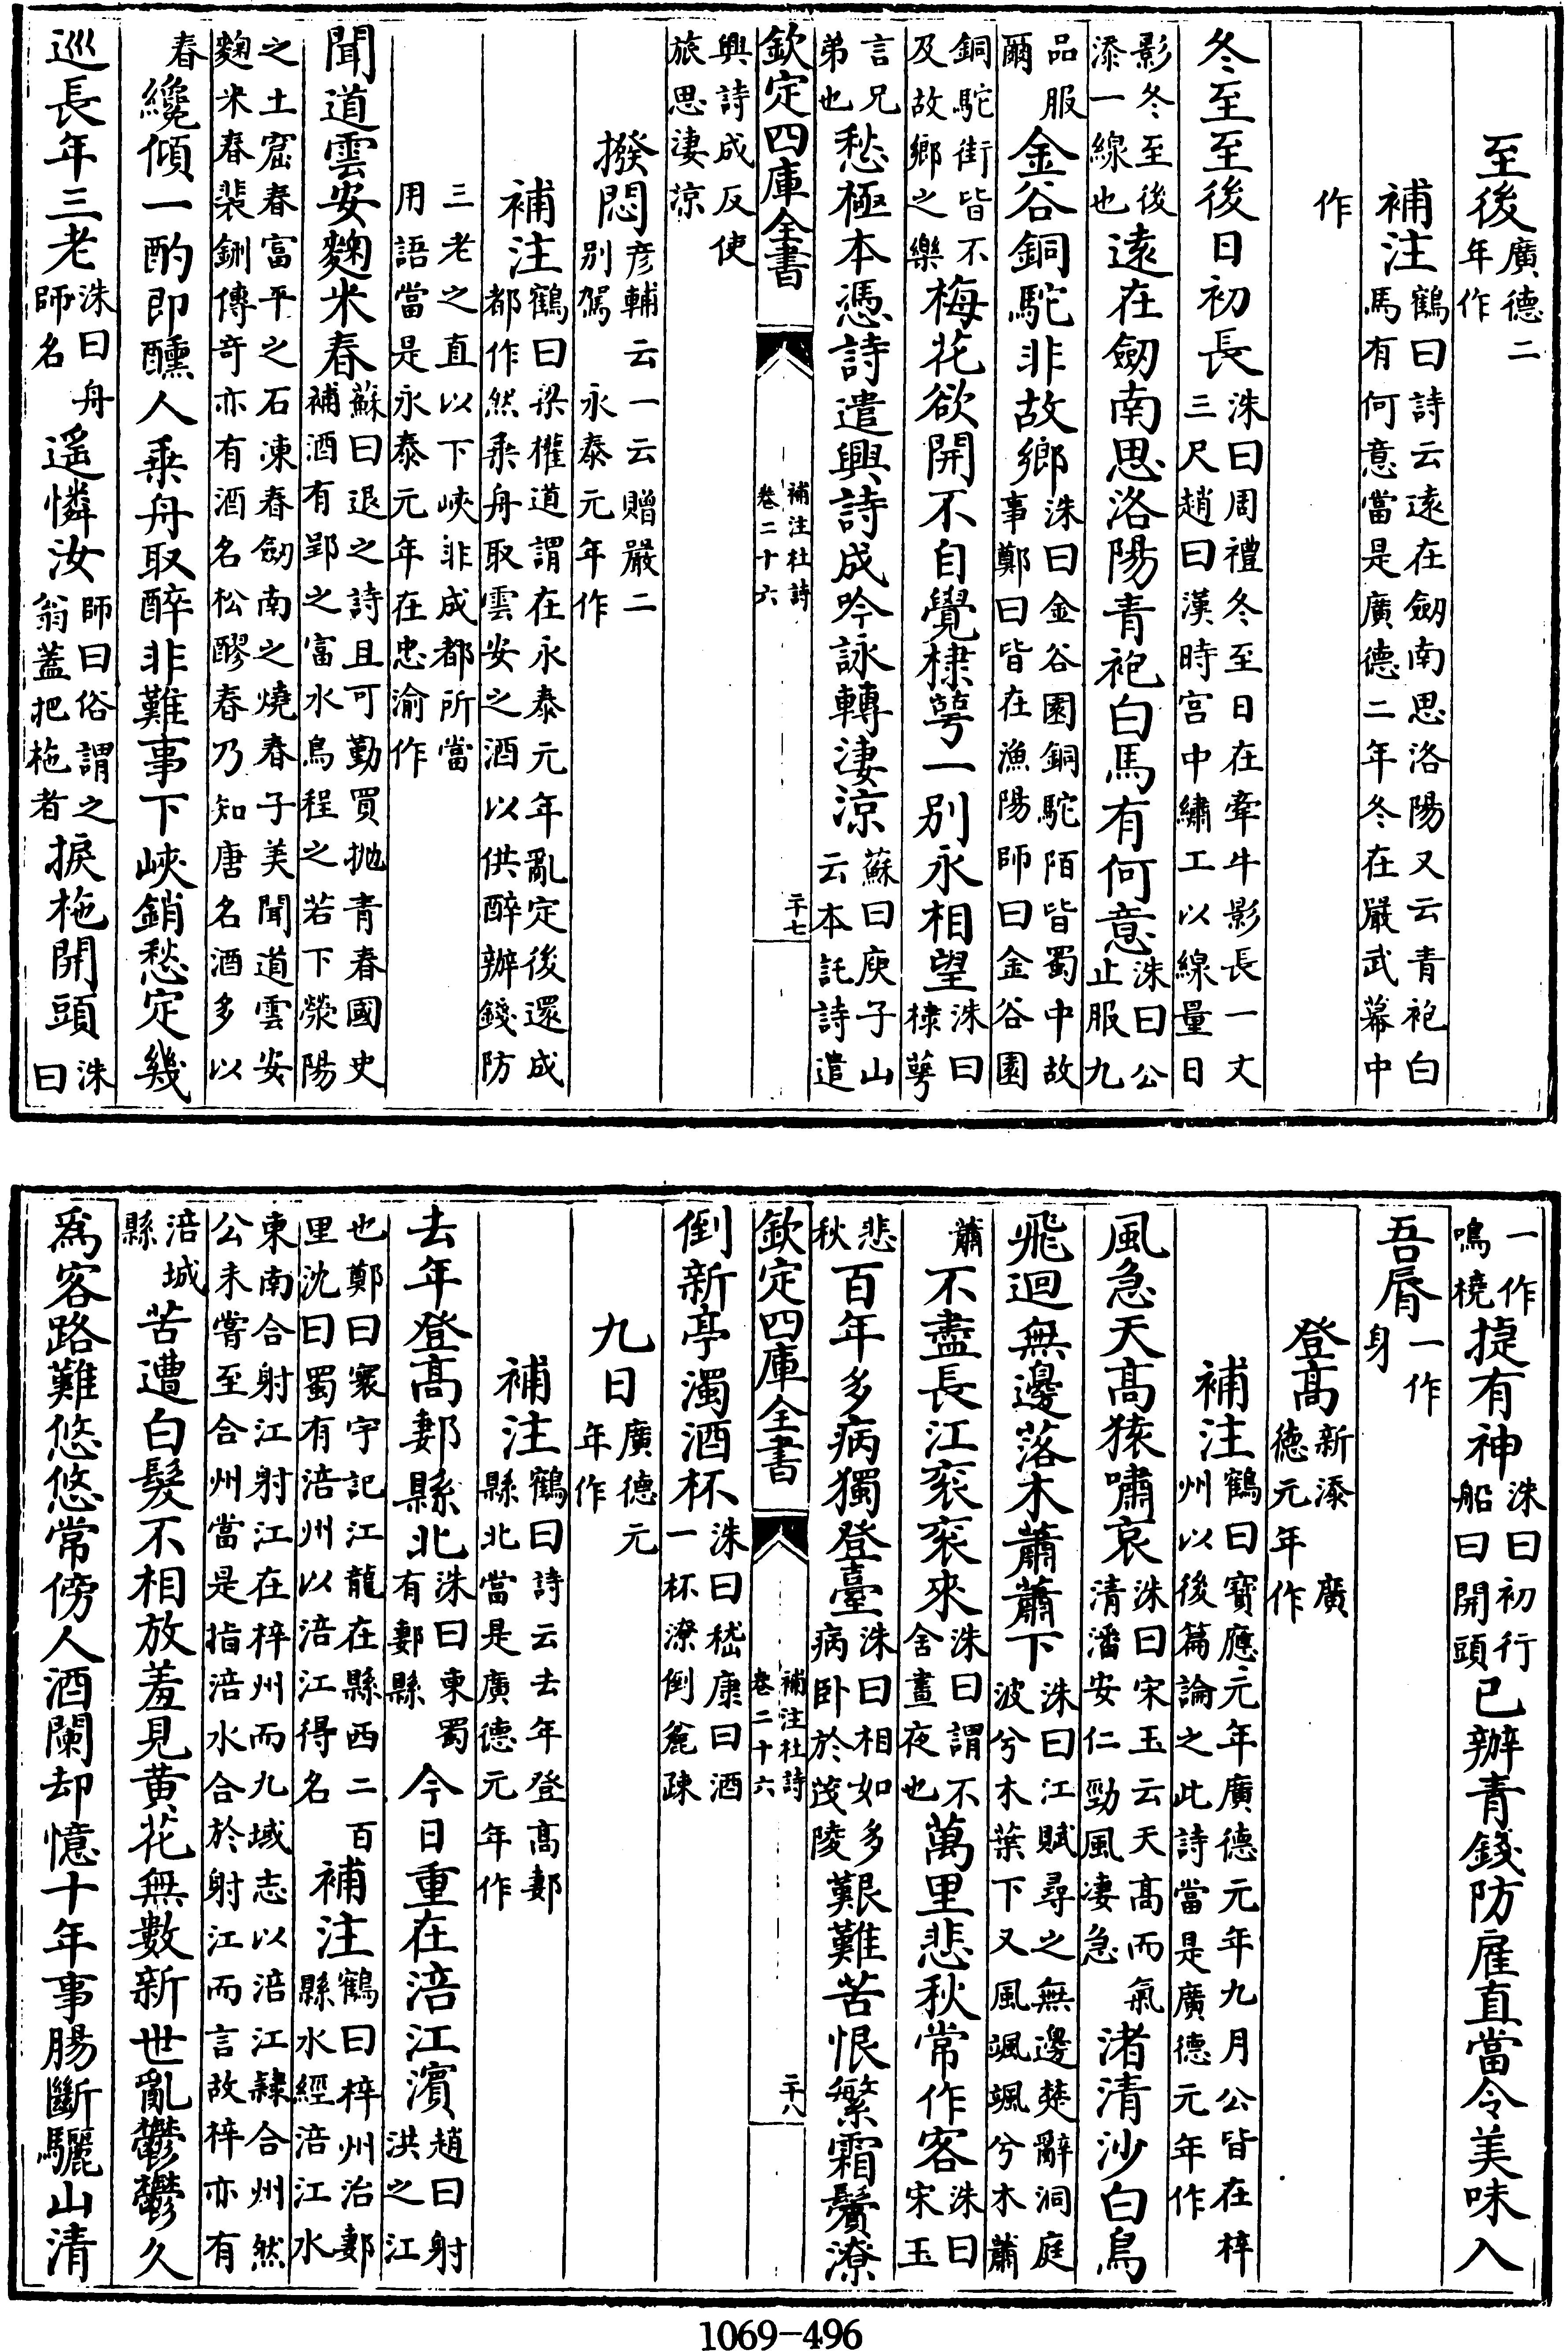 至後廣德二年作
補注鶴曰詩云遠在劒南思洛陽又云青袍白馬有何意當是廣德二年冬在嚴武幕中
作
冬至至後日初長洙曰周禮冬至日在牽牛影長一丈三尺趙曰漢時宮中繡工以線量日
影冬至後添一線也遠在劒南思洛陽青袍白馬有何意洙曰公止服九
品服爾金谷銅駝非故鄉洙曰金谷園銅駝陌皆蜀中故事鄭曰皆在漁陽師曰金谷園
銅駝街皆不及故鄉之樂梅花欲開不自覺棣萼一別永相望洙曰棣萼
言兄弟也愁極本憑詩遣興詩成吟詠轉淒涼蘇曰庾子山云本託詩遣
欽定四庫全書 補注杜詩卷二十六 二十七
興詩成反使旅思淒涼
撥悶彥輔云一云贈嚴二別駕 永泰元年作
補注鶴曰梁權道謂在永泰元年亂定後還成都作然乘舟取雲安之酒以供醉辦錢防
三老之直以下峽非成都所當用語當是永泰元年在忠渝作
聞道雲安麴米春蘇曰退之詩且可勤買抛青春國史補酒有郢之富水烏程之若下滎陽
之土窟春富平之石凍春劒南之燒春子美聞道雲安麴米春裴鉶傳奇亦有酒名松醪春乃知唐名酒多以
春纔傾一酌即醺人乘舟取醉非難事下峽銷愁定幾
巡長年三老洙曰舟師名遙憐汝師曰俗謂之翁蓋把柂者捩柂開頭洙曰
一作鳴橈捷有神洙曰初行船曰開頭已辦青錢防雇直當令美味入
吾脣一作身
登高新添 廣德元年作
補注鶴曰寶應元年廣德元年九月公皆在梓州以後篇論之此詩當是廣德元年作
風急天高猿嘯哀洙曰宋玉云天高而氣清潘安仁勁風凄急渚清沙白鳥
飛迴無邊落木蕭蕭下洙曰江賦尋之無邊楚辭洞庭波兮木葉下又風颯颯兮木蕭
蕭不盡長江衮衮來洙曰謂不舍晝夜也萬里悲秋常作客洙曰宋玉
悲秋百年多病獨登臺洙曰相如多病卧於茂陵艱難苦恨繁霜鬢潦
欽定四庫全書 補注杜詩卷二十六 二十八
倒新亭濁酒杯洙曰嵇康曰酒一杯潦倒麄疎
九日廣德元年作
補注鶴曰詩云去年登高郪縣北當是廣德元年作
去年登高郪縣北洙曰東蜀有郪縣今日重在涪江濱趙曰射洪之江
也鄭曰寰宇記江龍在縣西二百里沈曰蜀有涪州以涪江得名補注鶴曰梓州治郪縣水經涪江水
東南合射江射江在梓州而九域志以涪江隸合州然公未嘗至合州當是指涪水合於射江而言故梓亦有
涪城縣苦遭白髮不相放羞見黃花無數新世亂鬱鬱久
爲客路難悠悠常傍人酒闌却憶十年事腸斷驪山清
1069-496